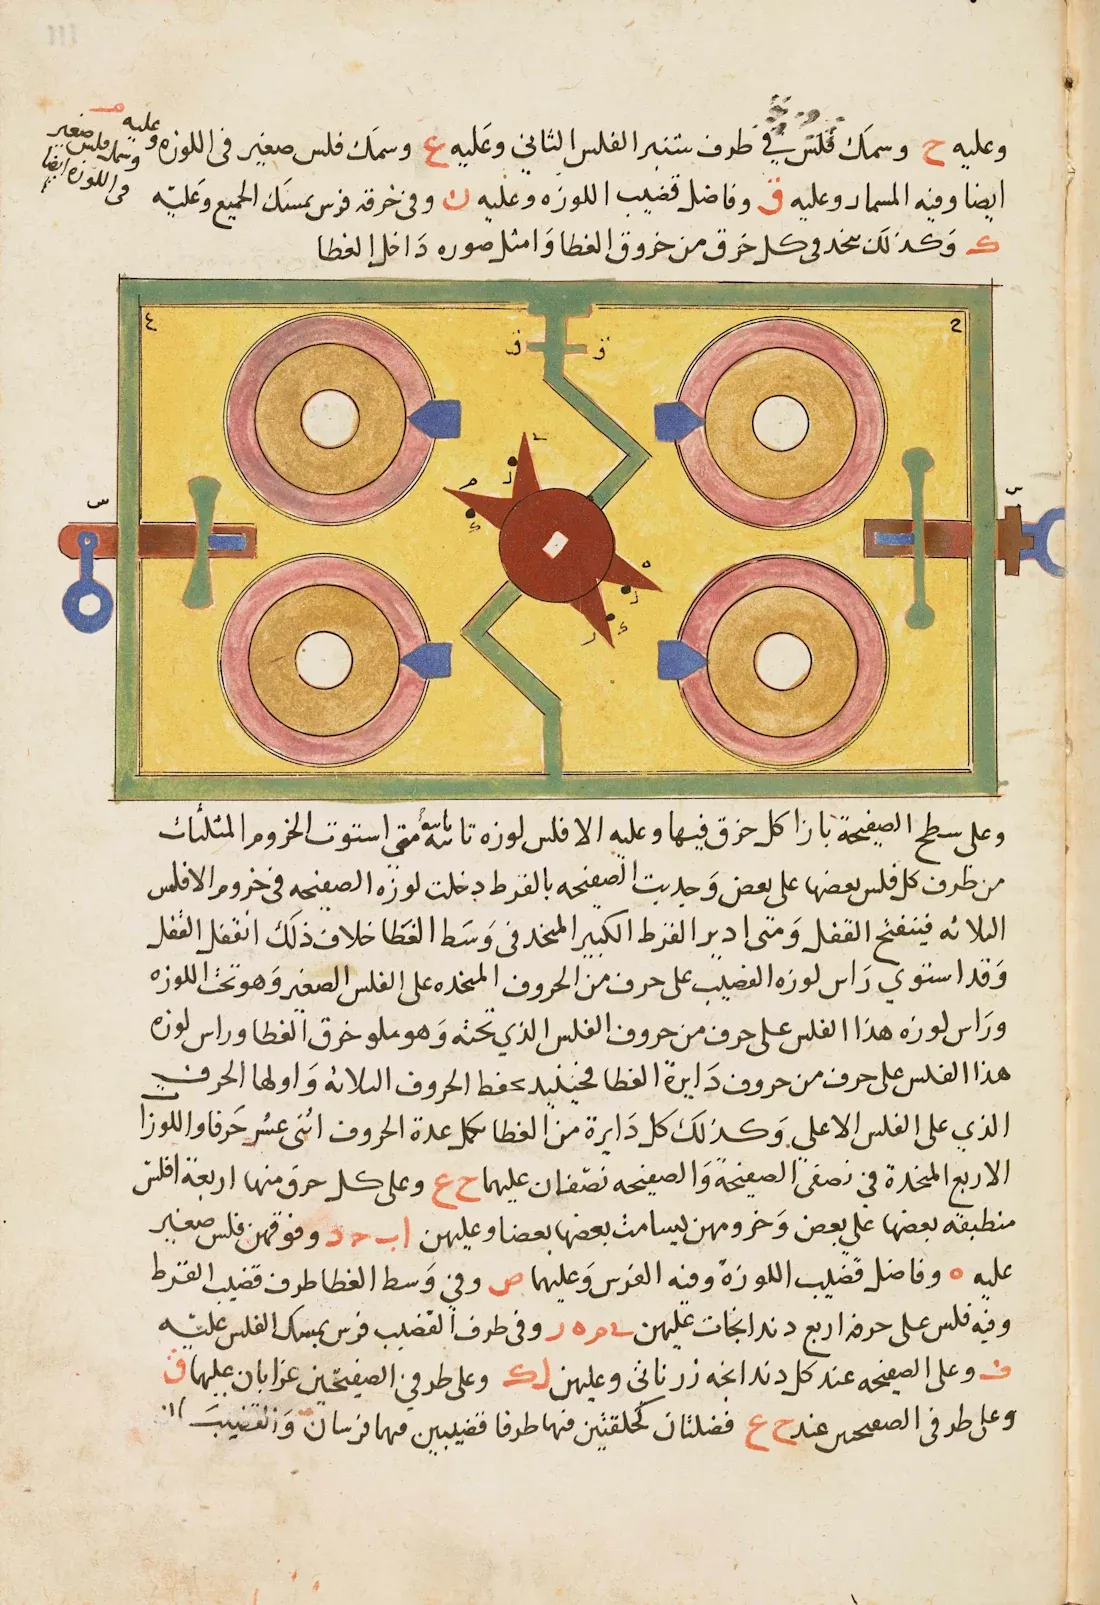 وعليه ح وسمك فلس في طرف ستبر الفلس الثاني وعليه ع وسمك فلس صغير في اللوزه وعليه م
وسمك فلس صغير
في اللوزه ايضا
ايضا وفيه المسمار وعليه ق وفاضل قضيب اللوزه وعليه ن وفي خرقه فرس يمسك الجميع وعليه
ك وكذلك يتخد في كل خرق من خروق الغطا وامثل صوره داخل الغطا
ع
ح
ق
ق
س
س
م
ر
ك
ه
ر
ك
ر
وعلى سطح الصفيحة بازا كل خرق فيها وعليه الافلس لوزه ثابتة متى استوت الخروم المثلثات
من طرف كل فلس بعضها على بعض وجذبت الصفيحه بالقرط دخلت لوزه الصفيحه في خروم الافلس
الثلاثه فينفتح القفل ومتى ادير القرط الكبير المتخد في وسط الغطا خلاف ذلك انقفل القفل
وقد استوي راس لوزه القضيب على حرف من الحروف المتخده على الفلس الصغير وهو تحت اللوزه
وراس لوزه هذا الفلس على حرف من حروف الفلس الذي تحته وهو ملو خرق الغطا وراس لوزه
هذا الفلس على حرف من حروف دايرة الغطا فحينيذ يحفظ الحروف الثلاثه واولها الحرف
الذي على الفلس الاعلى وكذلك كل دايرة من الغطا تكمل عدة الحروف اثنى عشر حرفا واللوزا
الاربع المتخدة في نصفي الصفيحة والصفيحه نصفان عليهما ح ع وعلى كل خرق منها اربعة افلس
منطبقه بعضها على بعض وخرومهن ليسامت بعضها بعضا وعليهن ا ب ح د وفوقهن فلس صغير
عليه ه وفاضل قضيب اللوزة وفيه الفرس وعليهما ص وفي وسط الغطا طرف قضيب القرط
وفيه فلس على حرفه اربع دندانجات عليهن ل م ه ر وفي طرف القضيب فرس يمسك الفلس عليه
ف وعلى الصفيحه عند كل دندانجه زر ناتئ وعليهن ل ك وعلى طرفي الصفيحتين غرابان عليهما ق
وعلى طرفي الصفيحتين عند ح ع فضلتان كحلقتين فيهما طرفا قضيبين فيهما فرسان والقضيبان